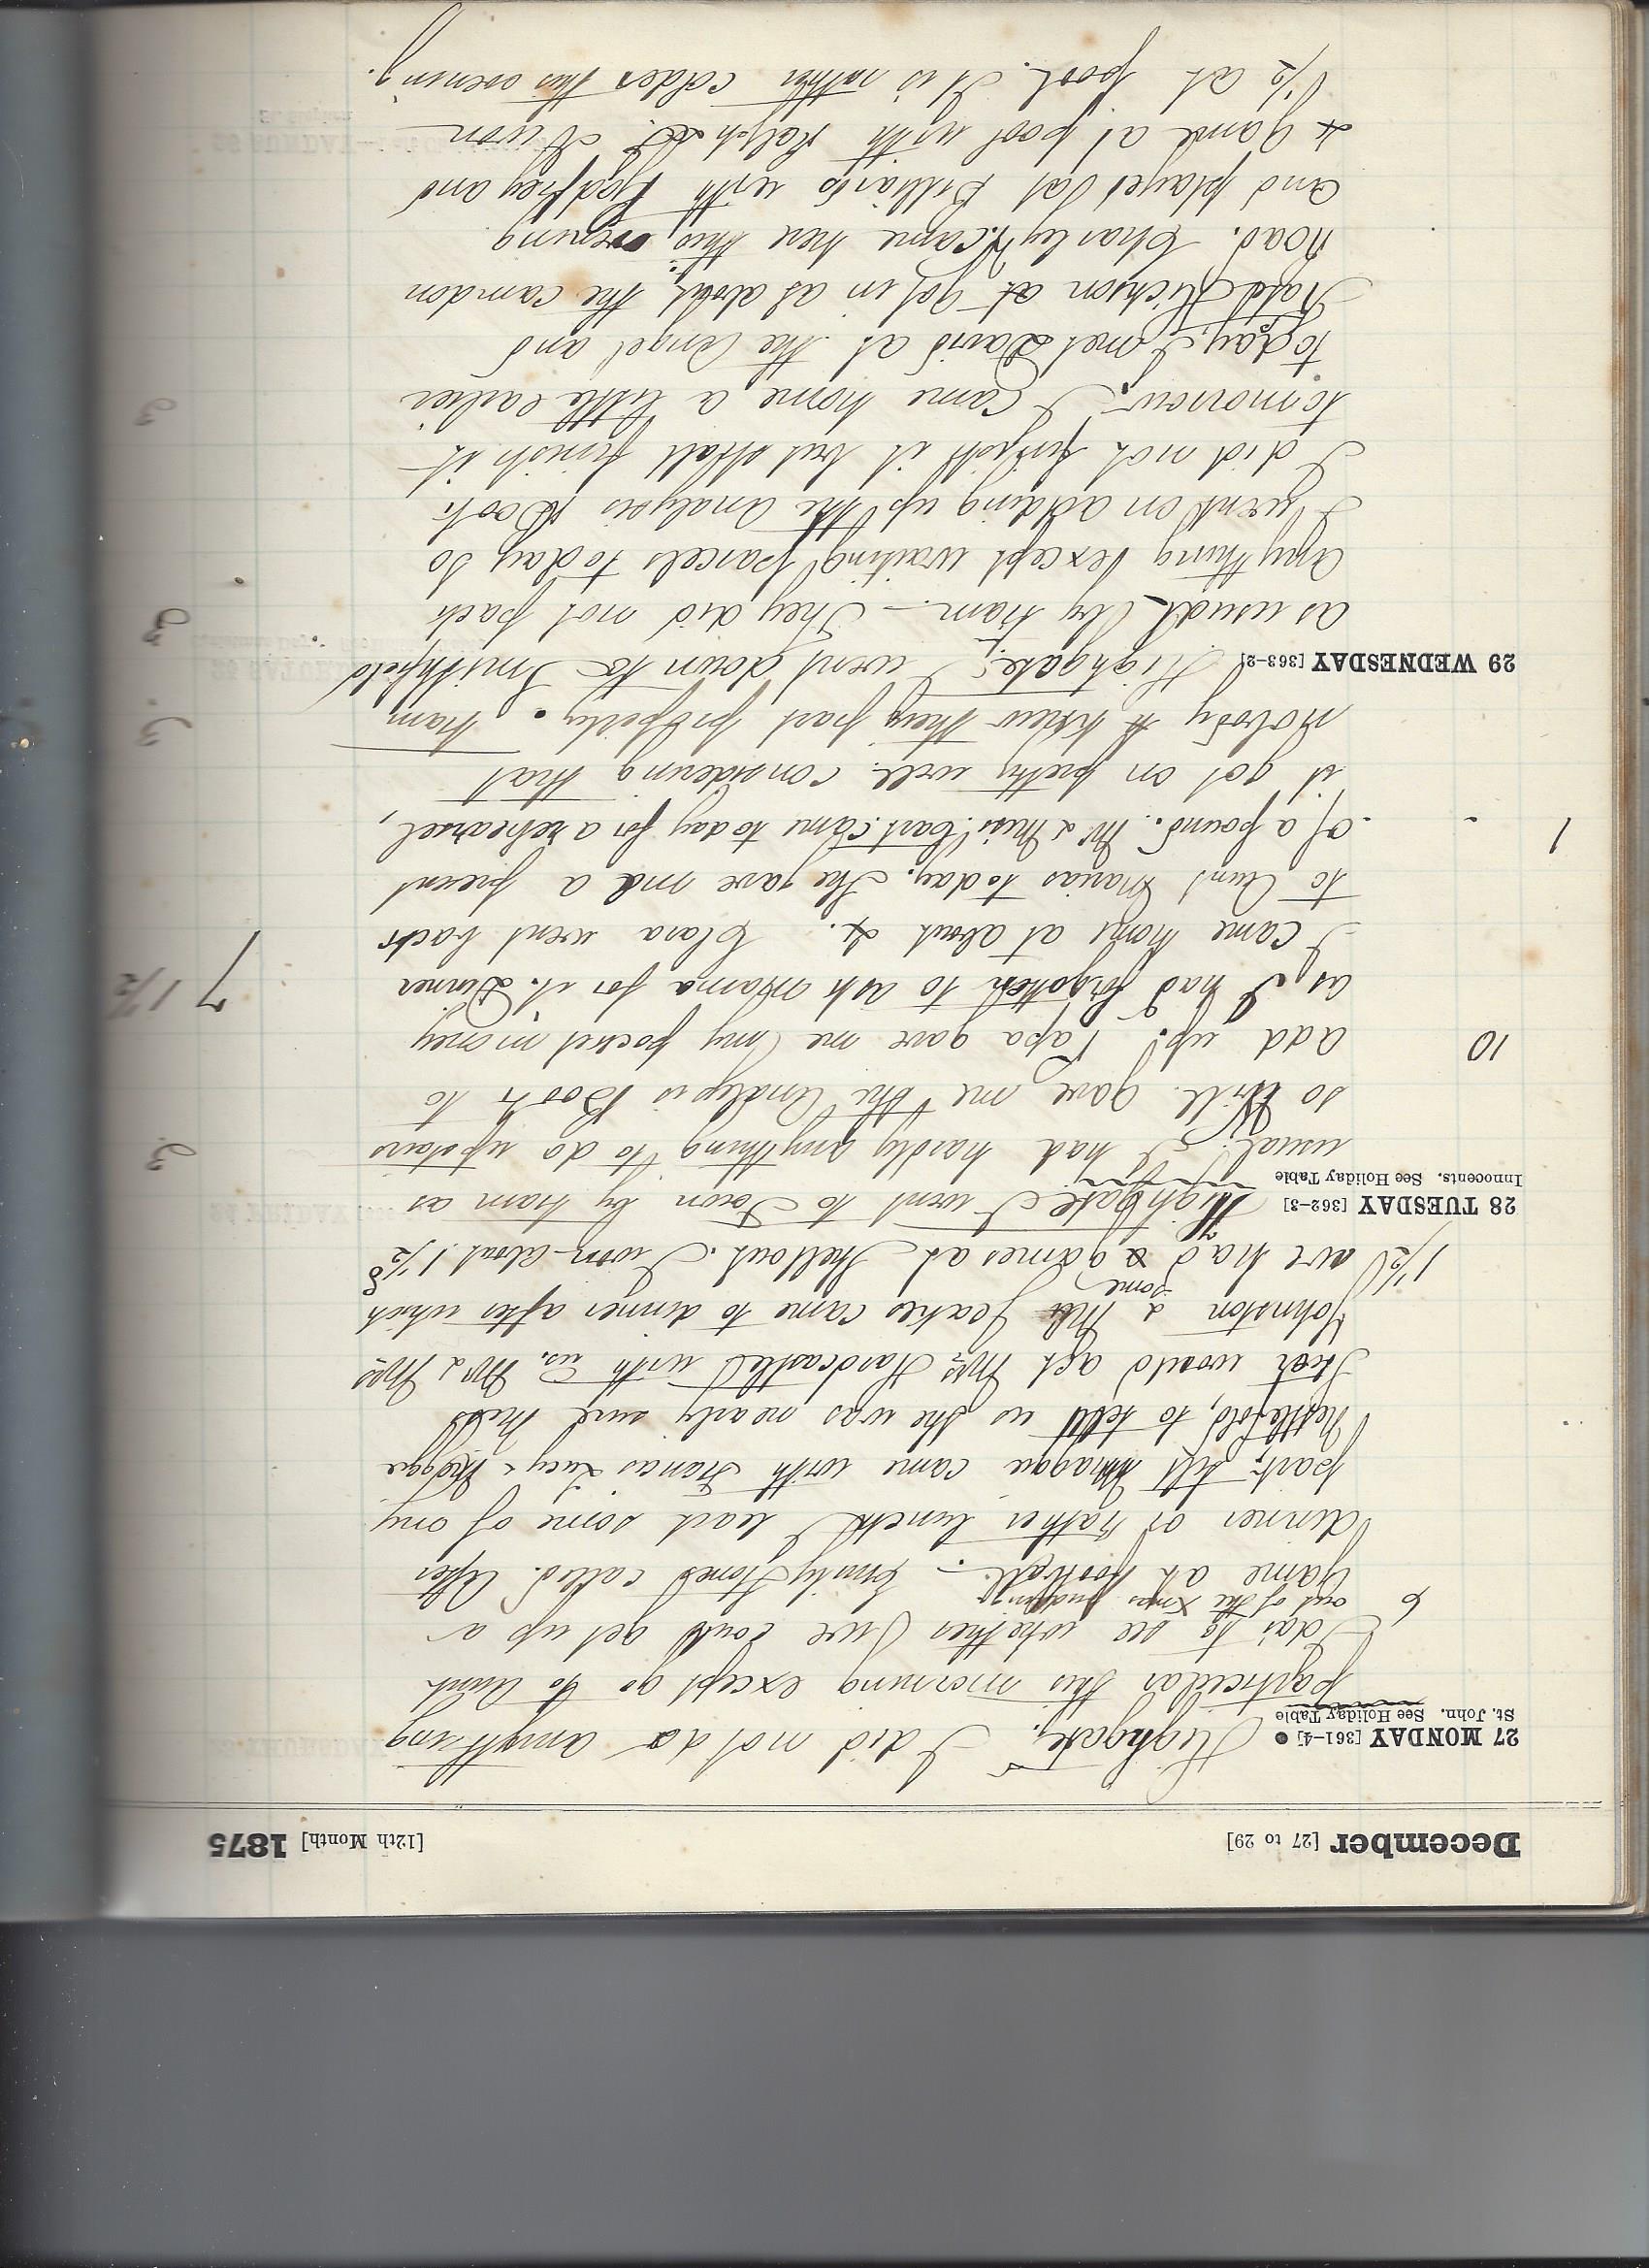 December [27 to 29] [12th Month] 1875
27 MONDAY [361-4] Highgate. I did not do anything
St. John. See Holiday Table
particular this morning except go to Aunt
Ida's to see whether we could get up a
6 out of the Xmas pudding
game at football. – Emily Jones called. After
dinner or rather lunch I read some of my
part, till Maggie came with Francis Lucy & Maggie
Nettlefold, to tell us she was nearly sure Miss
would act Mrs Hardcastle with us. Mr & Mrs
Johnston & Jeakes came to dinner after which
some
1 1/2 we had games at Shellout. I won about 1 1/2
28 TUESDAY [362-3] Highgate I went to Town by tram as
Innocents. See Holiday Table
usual. I had hardly anything to do upstairs
so Will gave me the Analysis Book to
10 add up. Papa gave me my pocket money
as I had forgotten to ask Mama for it. Dinner 7 1 1/2
I came home at about 4. Clara went back
to Aunt Marias today. She gave me a present
1 - of a pound. Mr & Miss Cart came today for a rehearsel,
it got on pretty well considering that
nobody knew their part properly. Tram
29 WEDNESDAY [363-2] Highgate. I went down to Smithfield
as usual by tram. – They did not pack
anything except waiting parcels today so
I went on adding up the Analysis Book.
I did not finish it but shall finish it
tomorrow. I came home a little earlier
today. I met David at the Angel and
Hickson got in at about the Camden
Road. Charley H. came here this evening
and played at Billiards with Godfrey and
a game at pool with Ralph & I. I won
1/2 at pool. It is rather colder this evening.